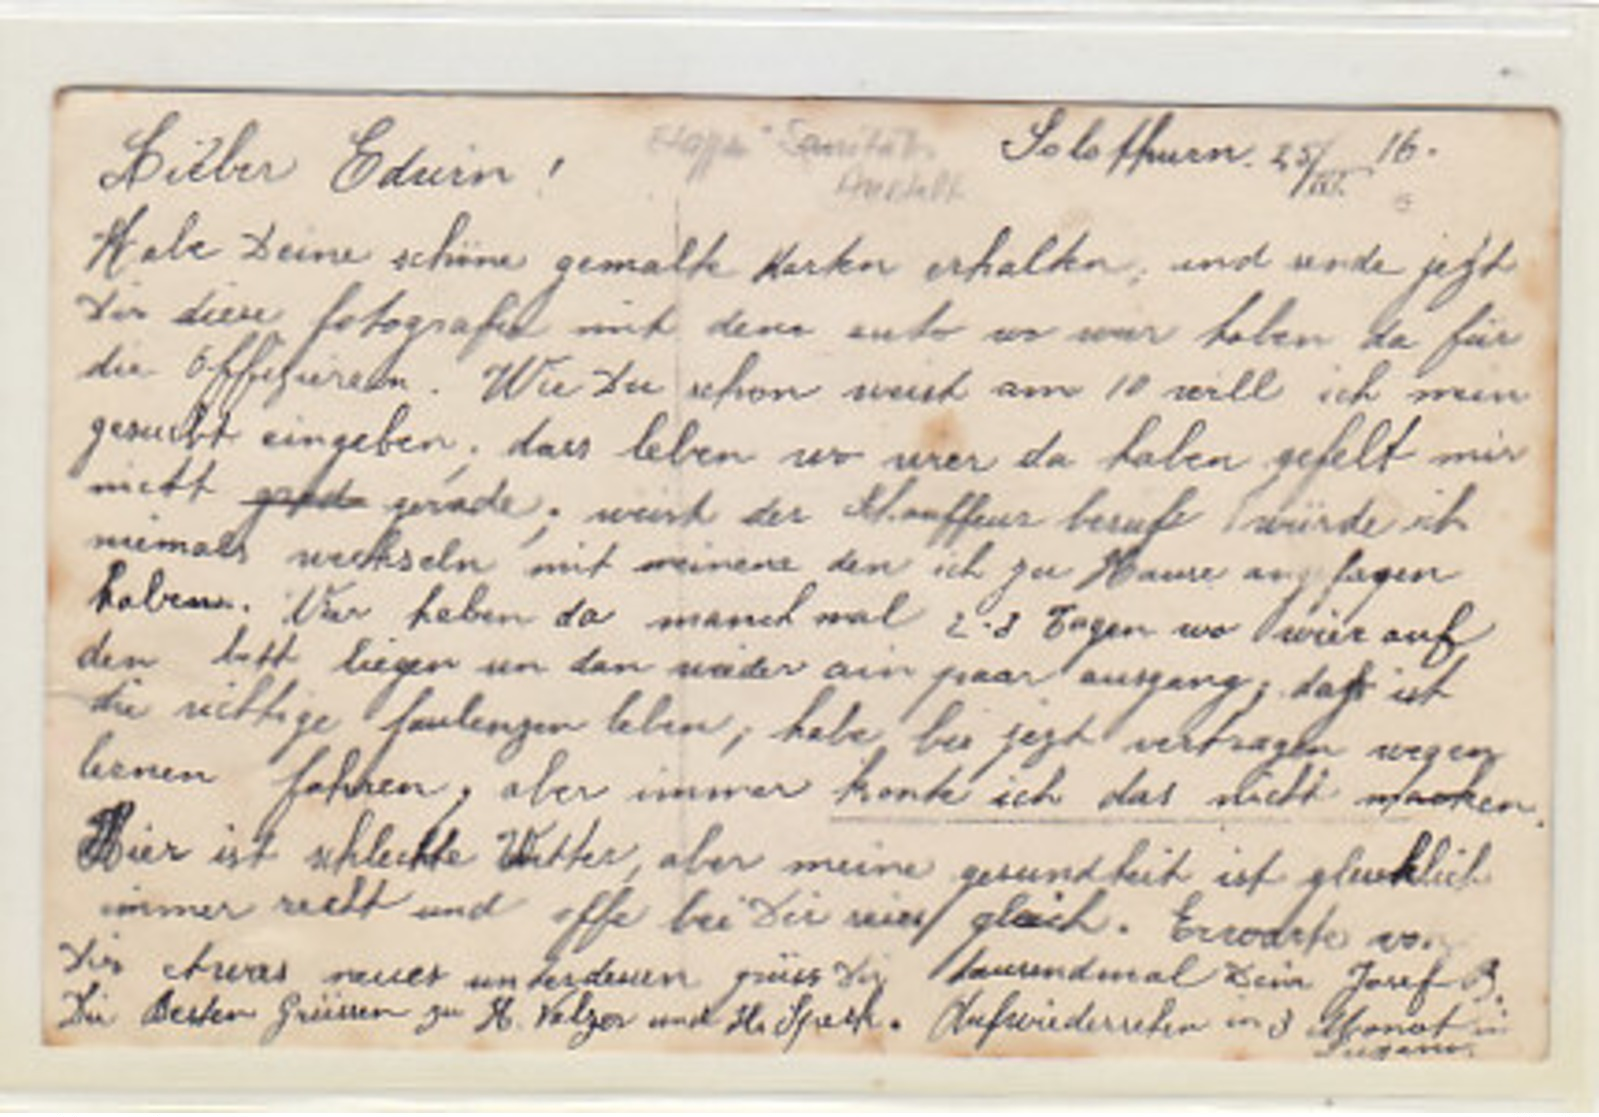 Solothurn. 25/III. 16.
Etappen Sanitäts
Anstalt
Lieber Edwin!
Habe Deine schöne gemalte Karten erhalten, und sende jezt
Dir diese fotografie mit dem auto wo wier haben da für
die Offizieren. Wie Du schon weist am 10 will ich mein
gesucht eingeben, dass leben wo wier da haben gefelt mir
nicht grad gerade, weist der Schauffeur berufe würde ich
niemals wechseln mit meinene den ich zu Hause angefagen
haben. Wier haben da manchmal 2-3 Tagen wo wier auf
den bett liegen un dan wieder ein paar ausgang, dass ist
die richtige faulenzen leben, habe bis jezt vertragen wegen
lernen fahren, aber immer konte ich das nicht machen.
Hier ist schlechte Wetter, aber meine gesundheit ist glucklich
immer recht und offe bei Dir gleich. Erwarte von
Dir etwas neues unterdessen grüss Dir tausendmal Dein Josef B.
Die Besten Grüssen zu H. und H. Speck. Aufwiedersehen in 3 Monat in
Lugano.